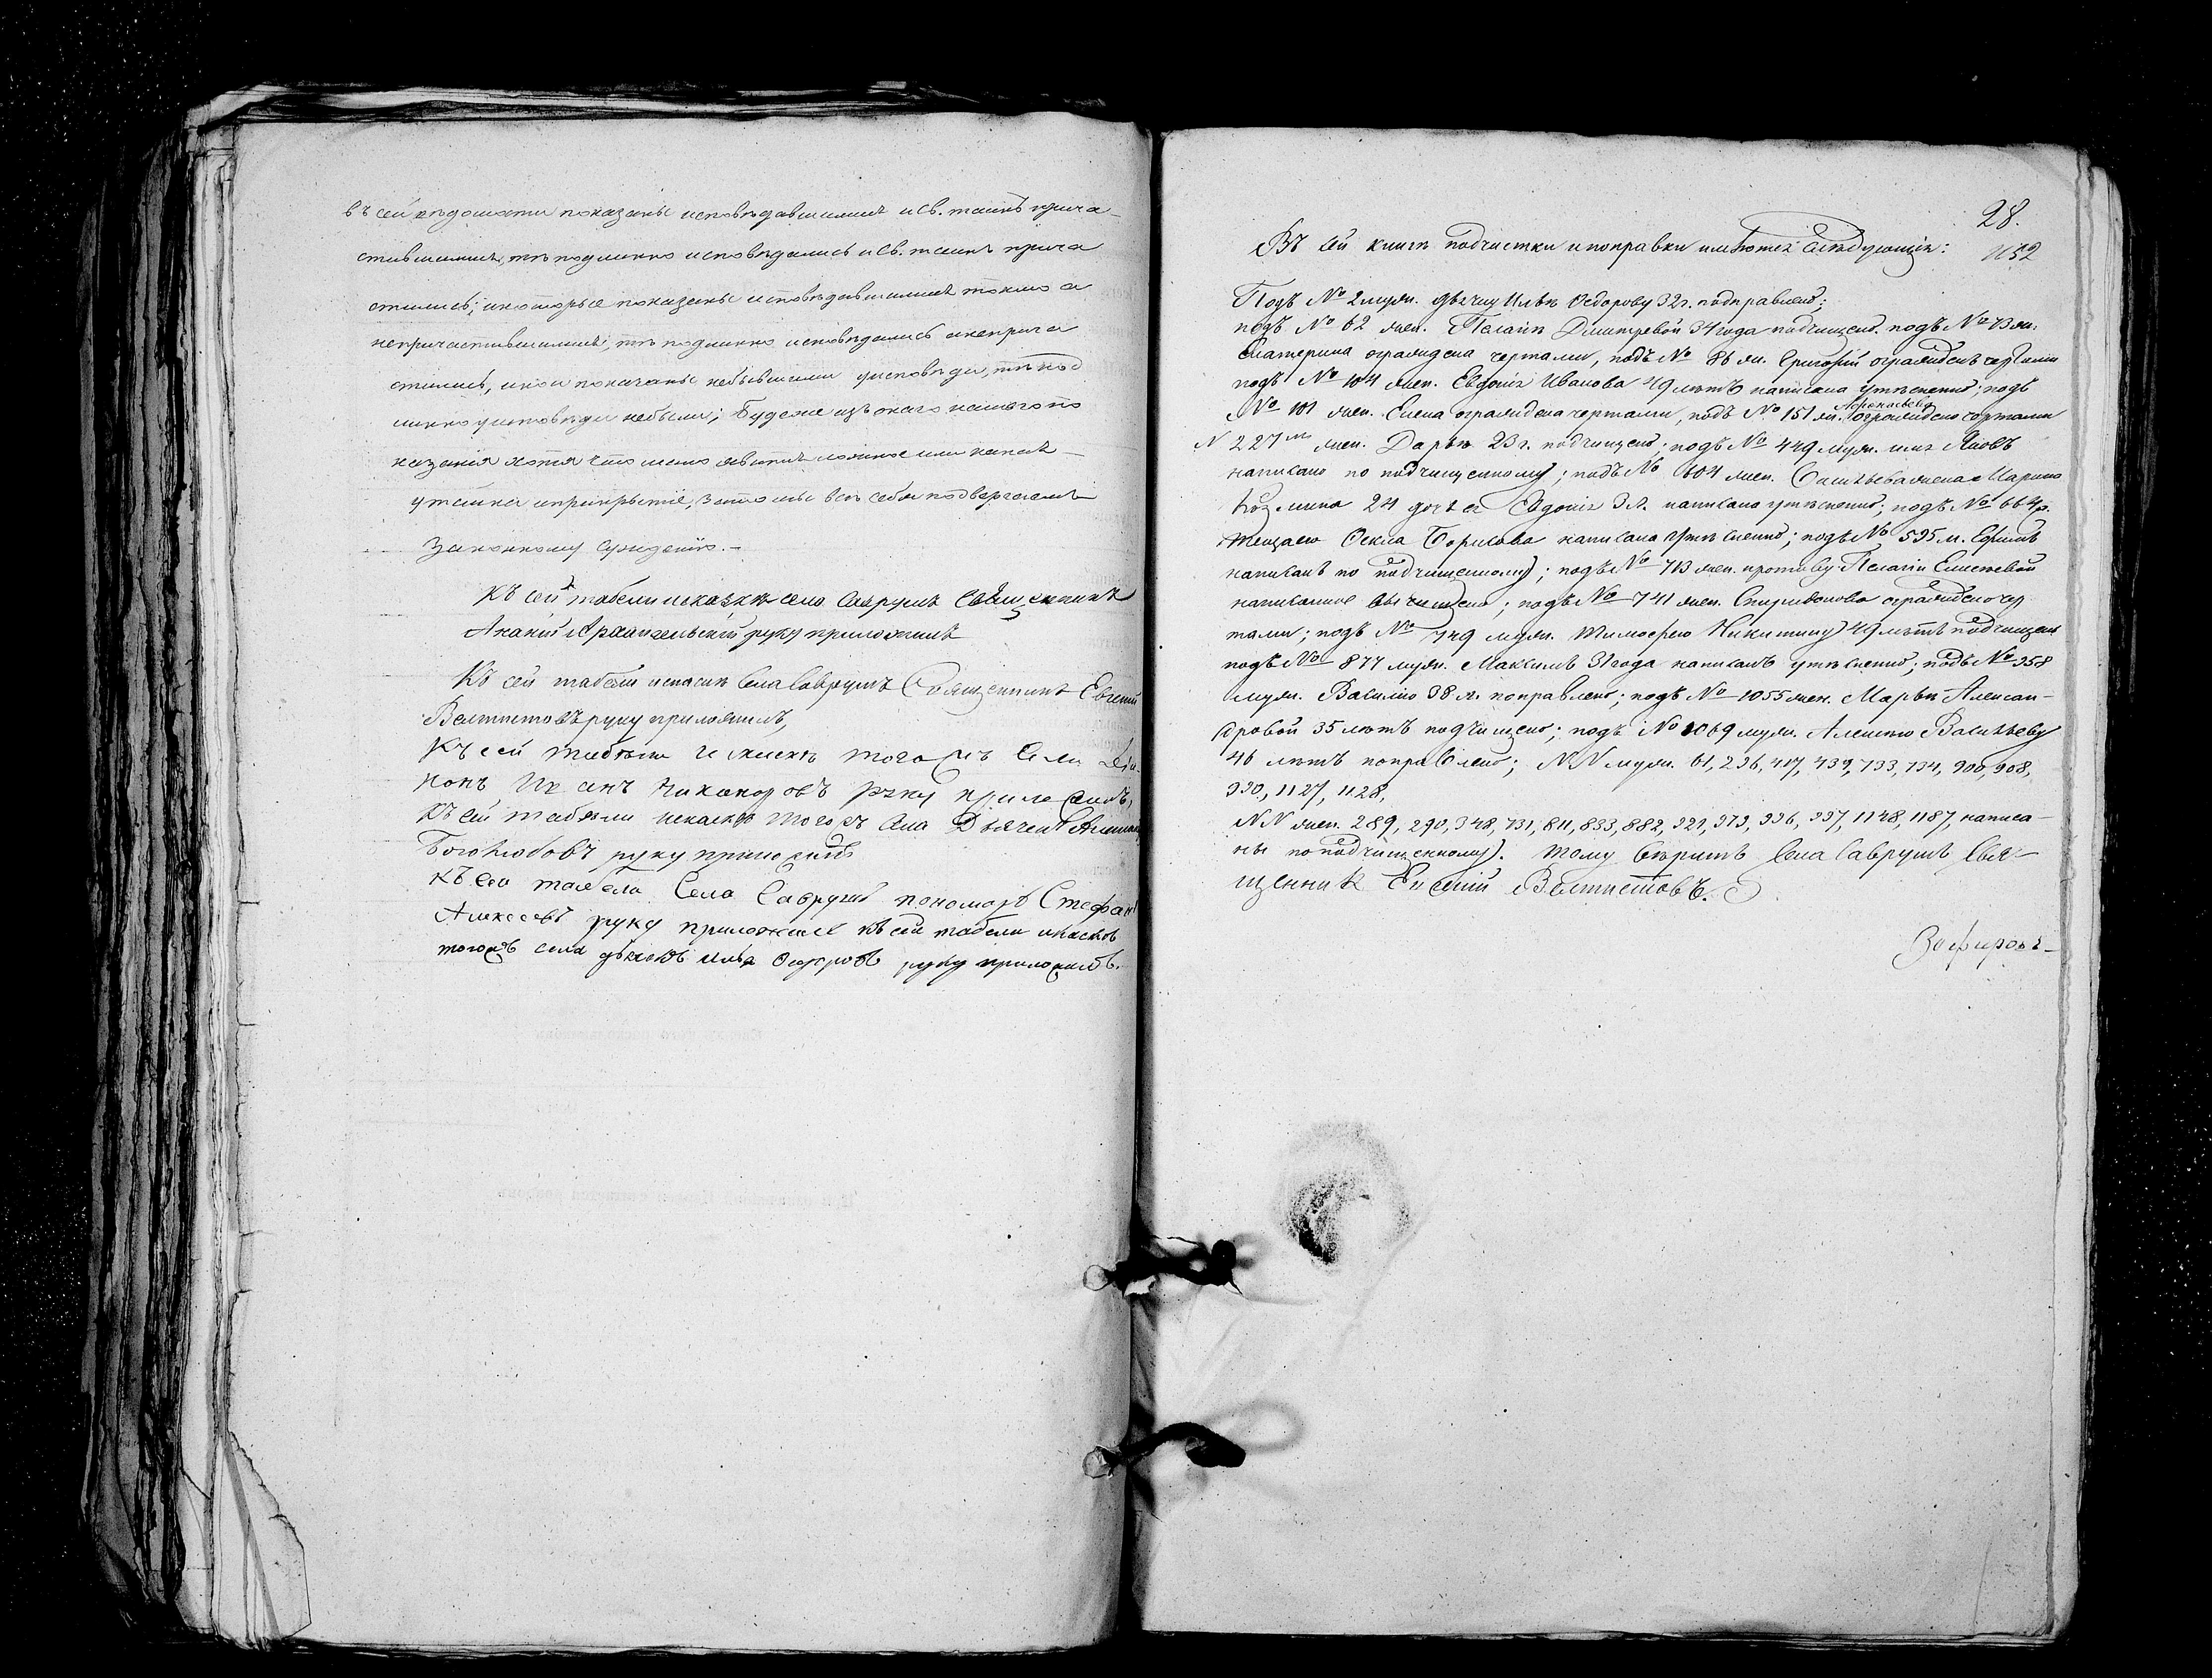 въ сей ведомости показаны исповедавшимися и св. таинъ прича-
стившимися, те подлинно исповедались и св. таинъ прича
стились; и которые показаны исповедавшимися токмо а
непричастившимися, те подлинно исповедались а неприча
стились, и кои показаны небывшими у исповеди, те под
линно у исповеди небыли; Буде же изъ онаго нашего по
казания хотя что мало явится ложное или какая
утайка и прикрытіе, за то мы все себя подвергаемъ
законному суждению.-
Къ сей табели и сказке села Саврушъ Священникъ
Ананій Архангельскій руку приложилъ
Къ сей табели и скаске Села Саврушъ Священникъ Евгеній
руку приложилъ,
Къ сей табели и скаске тогожъ Села Діа
конъ Никаноровъ руку приложилъ,
Къ сей табели искаске тогожъ Села Дьячекъ
Боголюбовъ руку приложилъ
Къ сей табели Села Саврушъ пономарь Стефанъ
Алексеевъ руку приложилъ къ сей табели искаске
тогожъ села дьячекъ Илья Федоровъ руку приложилъ.
28.
1132
Въ сей книге подчистки и поправки имеются следующія:
Подъ № 2 муж. дьячку Илье Федорову 32 г. подправлено;
подъ № 62 жен. Пелагіи Димитревой 34 года подчищено. подъ № 73 жен.
Екатерина ограждена чертами, подъ № 86 м. Григорій огражденъ чертами
подъ № 104 жен. Евдокія Иванова 49 летъ написана утесненно; подъ
№ 101 жен. Елена ограждена чертами, подъ № 151 ж. Афонасьева ограждено чертами
№ 227 жен. Дарье 23 г. подчищено; подъ № 449 муж. имя Яковъ
написано по подчищенному; подъ № 604 жен. Васильева жена Марина
Козмина 24 дочь ея Евдокія 3 л. написано утесненно; подъ № 664
Текла Борисова написана утесненно; подъ № 595 м. Ефимъ
написанъ по подчищенному; подъ № 713 жен. противу Пелагіи Елисеевой
написанное вычищено; подъ № 741 жен. Спиридонова ограждено чер
тами; подъ № 749 муж. Тимофею Никитину 49 летъ подчищено
подъ № 877 муж. Максимъ 31 года написанъ утесненно; подъ № 958
муж. Василию 38 л. поправлено; подъ № 1055 жен. Марье Алексан-
дровой 35 летъ подчищено; подъ № 1069 муж. Алексею Васильеву
46 летъ поправлено; NN муж. 61, 236, 417, 439, 733, 734, 900, 908,
990, 1127, 1128,
NN жен. 289, 290, 348, 731, 811, 833, 882, 921, 973, 996, 997, 1148, 1187, написа-
ны по подчищенному. тому веритъ Села Саврушъ Свя-
щенникъ Евгеній